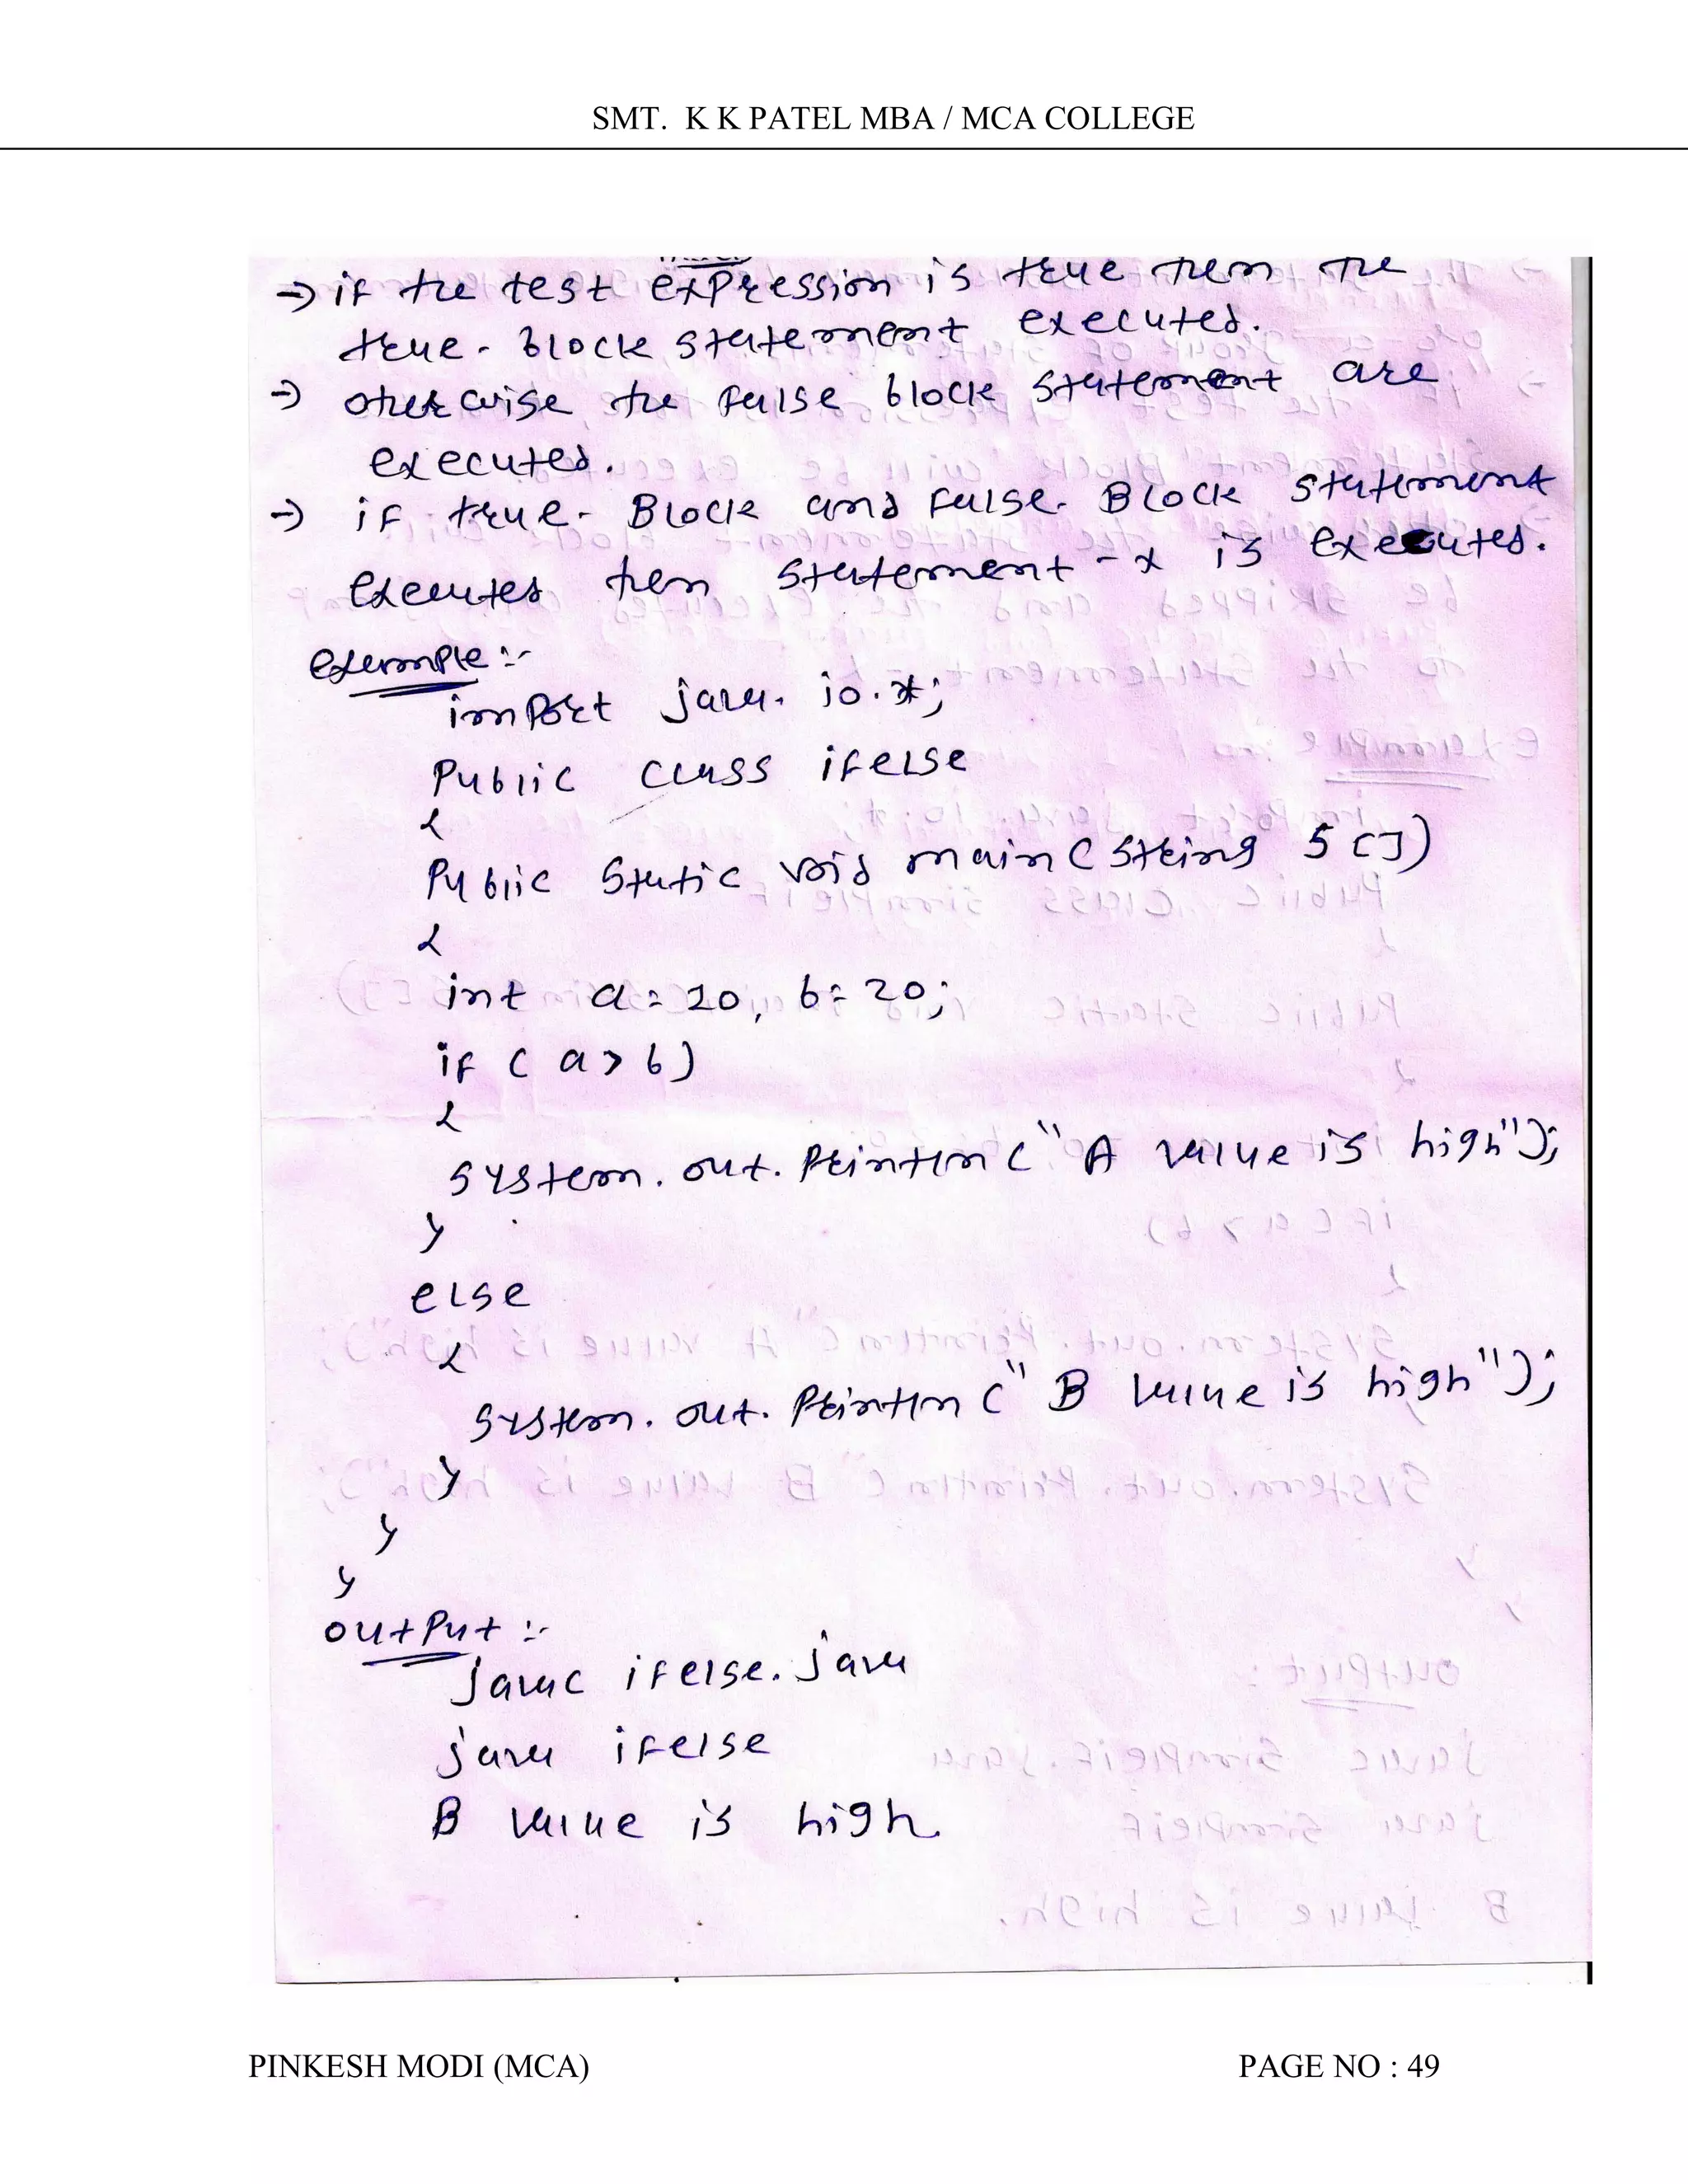 SMT. K K PATEL MBA / MCA COLLEGE
→ if the test expression is true then the
true-block statement executed.
→ otherwise the false block statement are
executed.
→ if true-Block and false-Block statement
executed then statement-x is executed.
example :-
import java.io.*;
Public class ifelse
{
Public static void main(String s[])
{
int a=10, b=20;
if (a>b)
{
system.out.println("A value is high");
}
else
{
system.out.println("B value is high");
}
}
}
output :-
javac ifelse.java
java ifelse
B value is high.
PINKESH MODI (MCA) PAGE NO : 49